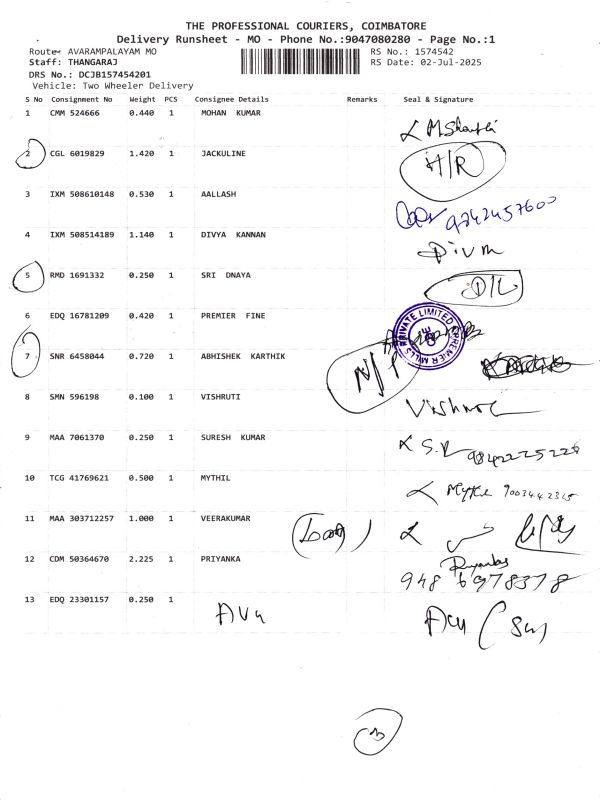 THE PROFESSIONAL COURIERS, COIMBATORE
Delivery Runsheet - MO - Phone No.:9047080280 - Page No.:1
Route- AVARAMPALAYAM MO RS No.: 1574542
Staff: THANGARAJ RS Date: 02-Jul-2025
DRS No.: DCJB157454201
Vehicle: Two Wheeler Delivery
S No Consignment No Weight PCS Consignee Details Remarks Seal & Signature
1 CMM 524666 0.440 1 MOHAN KUMAR
2 CGL 6019829 1.420 1 JACKULINE H/R
3 IXM 508610148 0.530 1 AALLASH 9242457600
4 IXM 508514189 1.140 1 DIVYA KANNAN
5 RMD 1691332 0.250 1 SRI DNAYA D/L
6 EDQ 16781209 0.420 1 PREMIER FINE PREMIER MILLS PRIVATE LIMITED
7 SNR 6458044 0.720 1 ABHISHEK KARTHIK N/P
8 SMN 596198 0.100 1 VISHRUTI
9 MAA 7061370 0.250 1 SURESH KUMAR
10 TCG 41769621 0.500 1 MYTHIL
11 MAA 303712257 1.000 1 VEERAKUMAR
12 CDM 50364670 2.225 1 PRIYANKA 948 6978378
13 EDQ 23301157 0.250 1
3